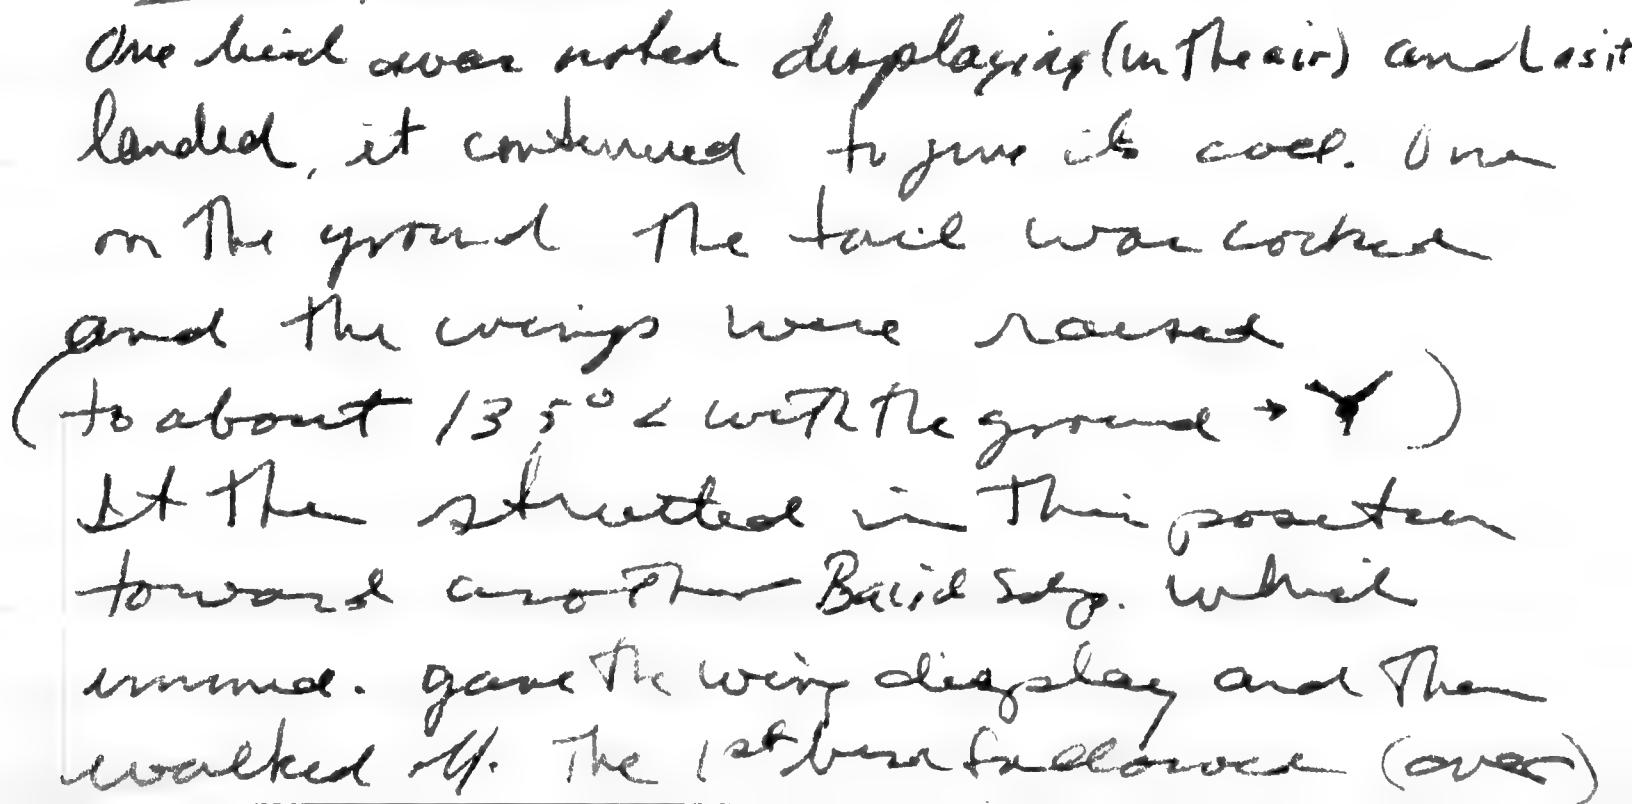 One bird was noted displaying (in the air) and as it
landed, it continued to give its call. Once
on the ground the tail was cocked
and the wings were raised
(to about 135° < with the ground → )
It then strutted in this position
toward another Baird Sdp. which
immed. gave the wing display and then
walked off. The 1st bird followed (over)